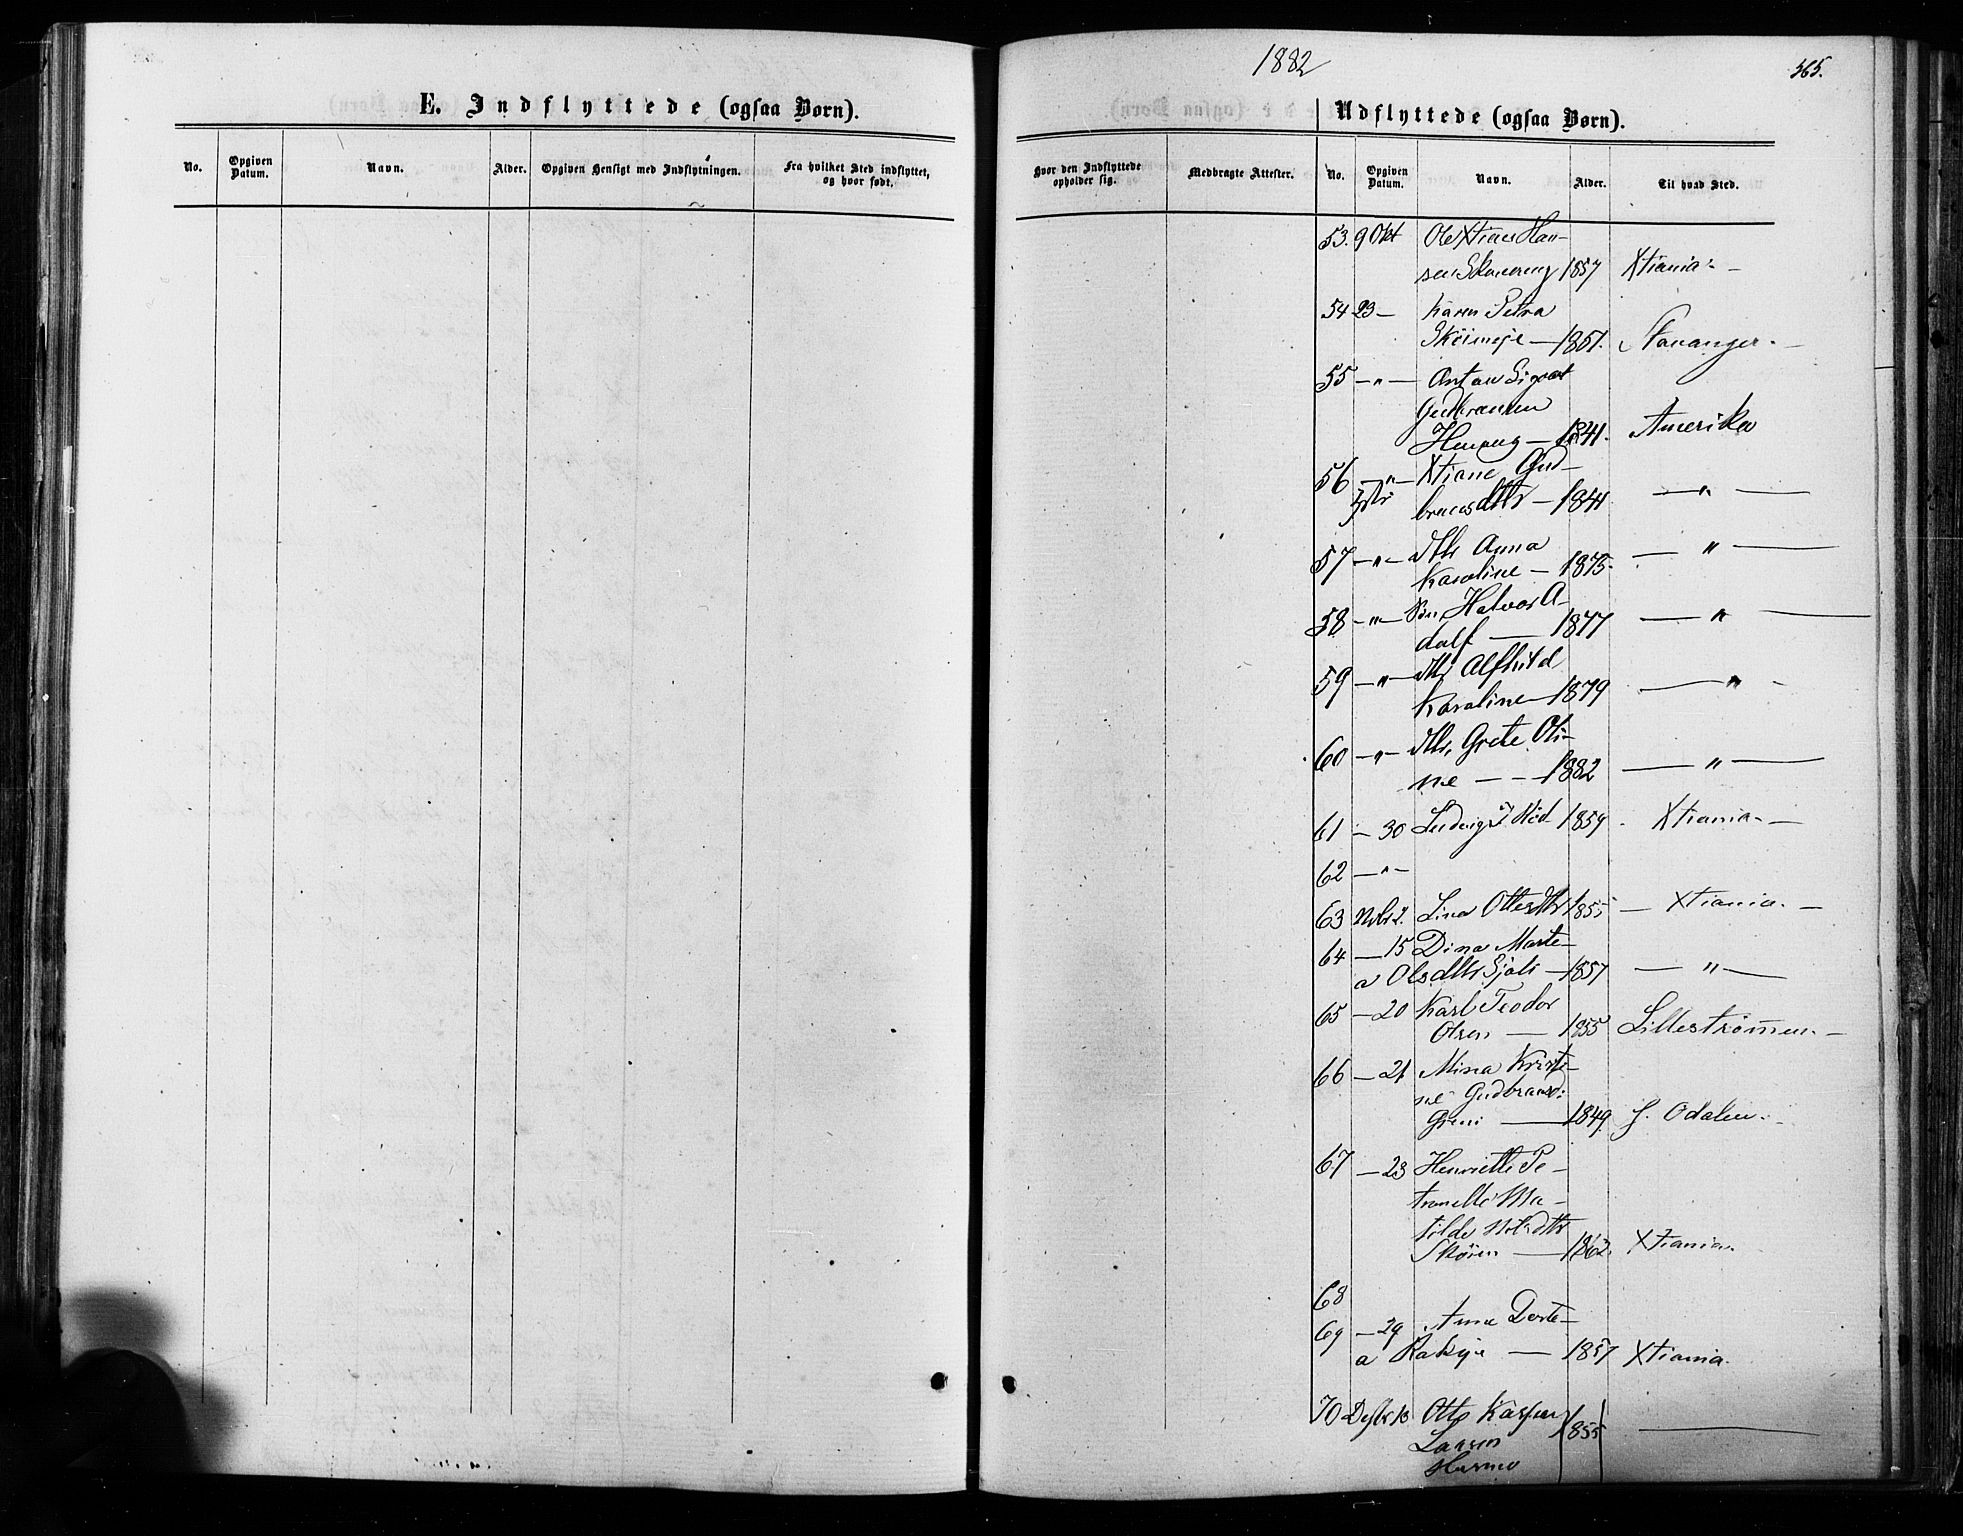 E. Indflyttede (ogsaa Børn).
No.
Opgiven Datum.
Navn.
Alder.
Opgiven Hensigt med Indflytningen.
Fra hvilket Sted indflyttet, og hvor født.
1882
365.
Udflyttede (ogsaa Børn).
Hvor den Indflyttede opholder sig.
Medbragte Attester.
No.
Opgiven Datum.
Navn.
Alder.
Til hvad Sted.
53. 9 Okt Ole Xtian Han-
sen 1857 Xtiania. -
54 23 - Karen Petra
- 1857. Stavanger. -
55 - " - Anton
Gudbransen
- 1841. Amerika
56 - " - Xtiane Gud-
bransdttr - 1841 - " -
57 - " - dttr Anna
Karoline - 1875. - " -
58 - " - Søn Halvor A-
dolf - 1877 - " -
59 - " - dttr Alfhild
Karoline - 1879 - " -
60 - " - dttr. Grete Oli-
ne - - 1882 - " -
61 - 30 Ludvig 1859. Xtiania. -
62 - " -
63 Nvbr 2. Lina Ottesdttr 1855 - Xtiania. -
64 - 15 Dina Marte-
a Olsdttr - 1857 - " -
65 - 20 Karl Teodor
Olsen - 1855 Lillestrømmen. -
66 - 21 Mina Kristi-
ne Gudbransd:
Greni - 1849. S. Odalen. -
67 - 23 Henriette Pe-
tronelle Ma-
tilde
Skøien - 1862. Xtiania.
68
69 - 29 Anne Dorte-
a - 1857 Xtiania.
70 Desbr 13 Otto Kasper
Larsen 1855 -